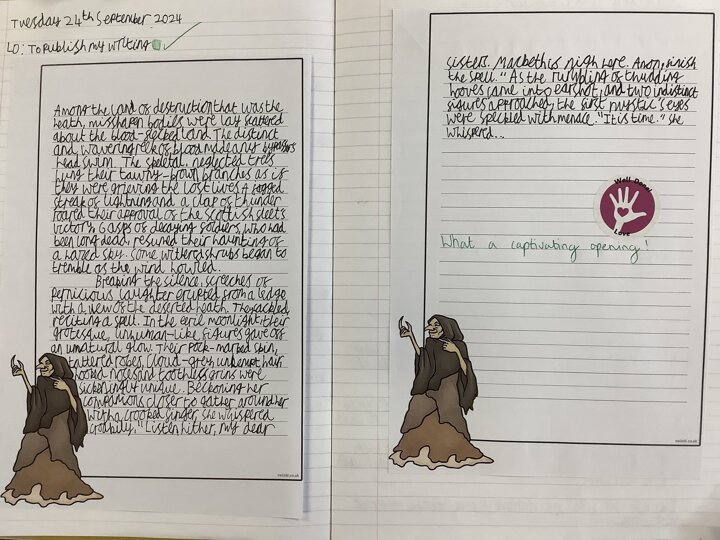 Tuesday 24th September 2024
LO: To publish my writing
Among the land of destruction that was the
heath, misshapen bodies were lay scattered
about the blood-pelted land. The distinct
and, wavering reek of blood made any bypassers
head swim. The skeletal, neglected trees
hung their tawny-brown branches as if
they were grieving the lost lives. A jagged
streak of lightning and a clap of thunder
roared their approval of the Scottish fleet's
victory. Gasps of decaying soldiers, who had
been long dead, resumed their haunting of
a naked sky. Some withered shrubs began to
tremble as the wind howled.
Breaking the silence, screeches of
pernicious laughter erupted from a ledge
with a view of the deserted heath. They cackled,
reciting a spell. In the eerie moonlight, their
grotesque, unhuman-like figures gave off
an unatural glow. Their pock-marked skin,
tattered robes, cloud-grey unkempt hair,
hooked nose and toothless grins were
sickeningly unique. Beckoning her
companions closer to gather around her
with a crooked finger, she whispered
croakily, "Listen hither, my dear
sisters. Macbeth is nigh here. Anon, finish
the spell." As the rumbling of thudding
hooves came into earshot, and two indistinct
figures approached, the first mystic's eyes
were speckled with menace. "It is time." she
whispered...
Well Done!
Love
What a captivating opening!
twinkl.co.uk
twinkl.co.uk